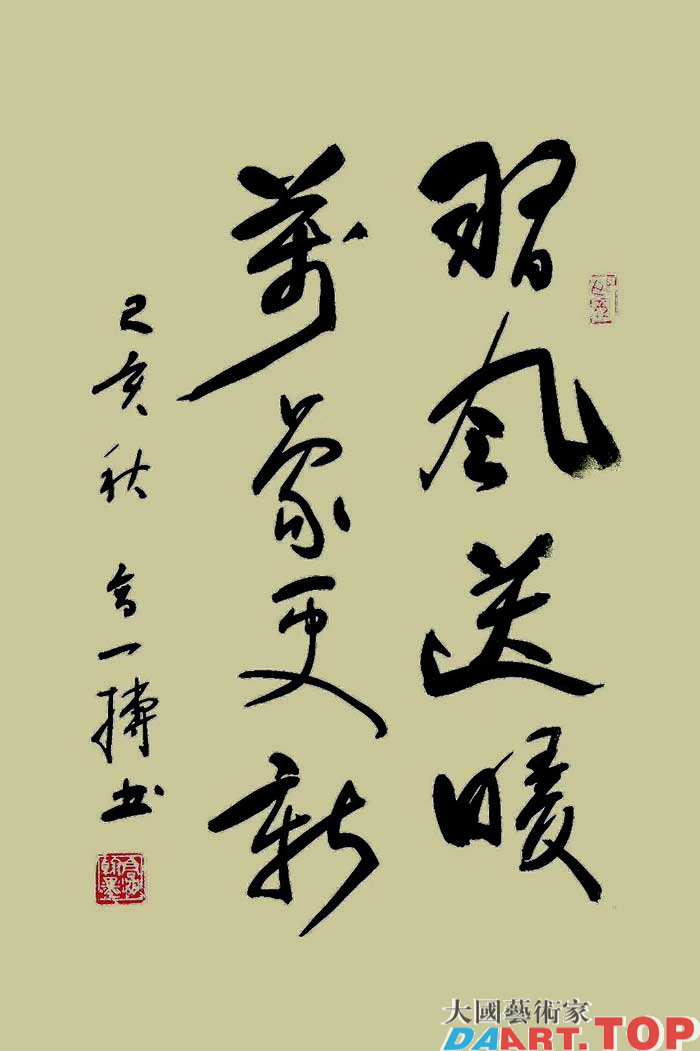 習风送暖
萬象更新
己亥秋 一搏书
大國藝術家
DAART.TOP